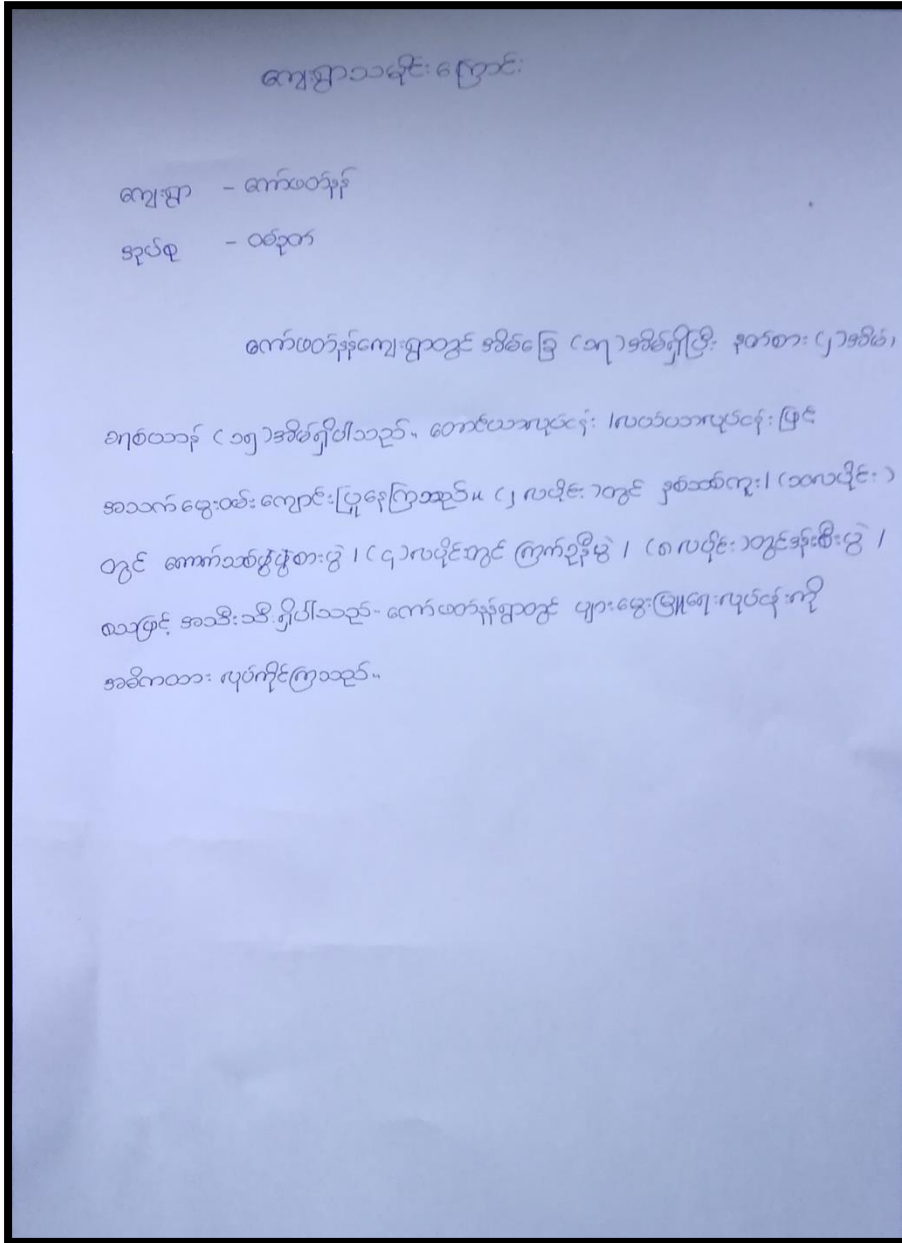 ကျေးရွာသမိုင်းကြောင်း
ကျေးရွာ - ကော်ဖတ်နန်
အုပ်စု - ဝမ်ဥတ်
ကော်ဖတ်နန်ကျေးရွာတွင် အိမ်ခြေ (၁၇)အိမ်ရှိပြီး နတ်စား (၂)အိမ်၊
ခရစ်ယာန် (၁၅)အိမ်ရှိပါသည်။ တောင်ယာလုပ်ငန်း ၊လယ်ယာလုပ်ငန်း ဖြင့်
အသက်မွေးဝမ်းကျောင်းပြုနေကြသည်။ (၂ လပိုင်း)တွင် နှစ်သစ်ကူး၊ (၁၀လပိုင်း)
တွင် ကောက်သစ်ပွဲစားပွဲ ၊ (၄)လပိုင်းတွင် ကြက်ဥနီပွဲ ၊ (၈ လပိုင်း)တွင်ဒန်းစီးပွဲ ၊
အသီးသီး ရှိပါသည်- ကော်ဖတ်နန်ရွာတွင် ပျားမွေးမြူရေးလုပ်ငန်းကို
အဓိကထား လုပ်ကိုင်ကြသည်။